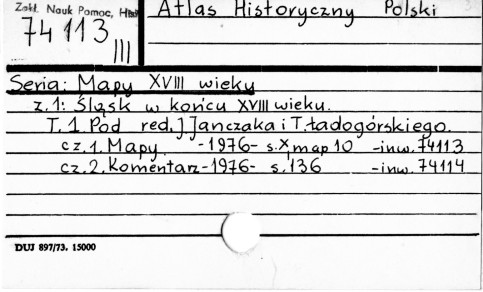 Zakł. Nauk Pomoc. Hist
74 113
III
Atlas Historyczny Polski
Seria: Mapy XVIII wieku
z. 1: Śląsk w końcu XVIII wieku.
T. 1. Pod red. J. Janczaka i T. Ładogórskiego.
cz. 1. Mapy -1976- s. X map 10 -inw. 74113
cz. 2. Komentarz -1976- s. 136 -inw. 74114
DUJ 897/73. 15000